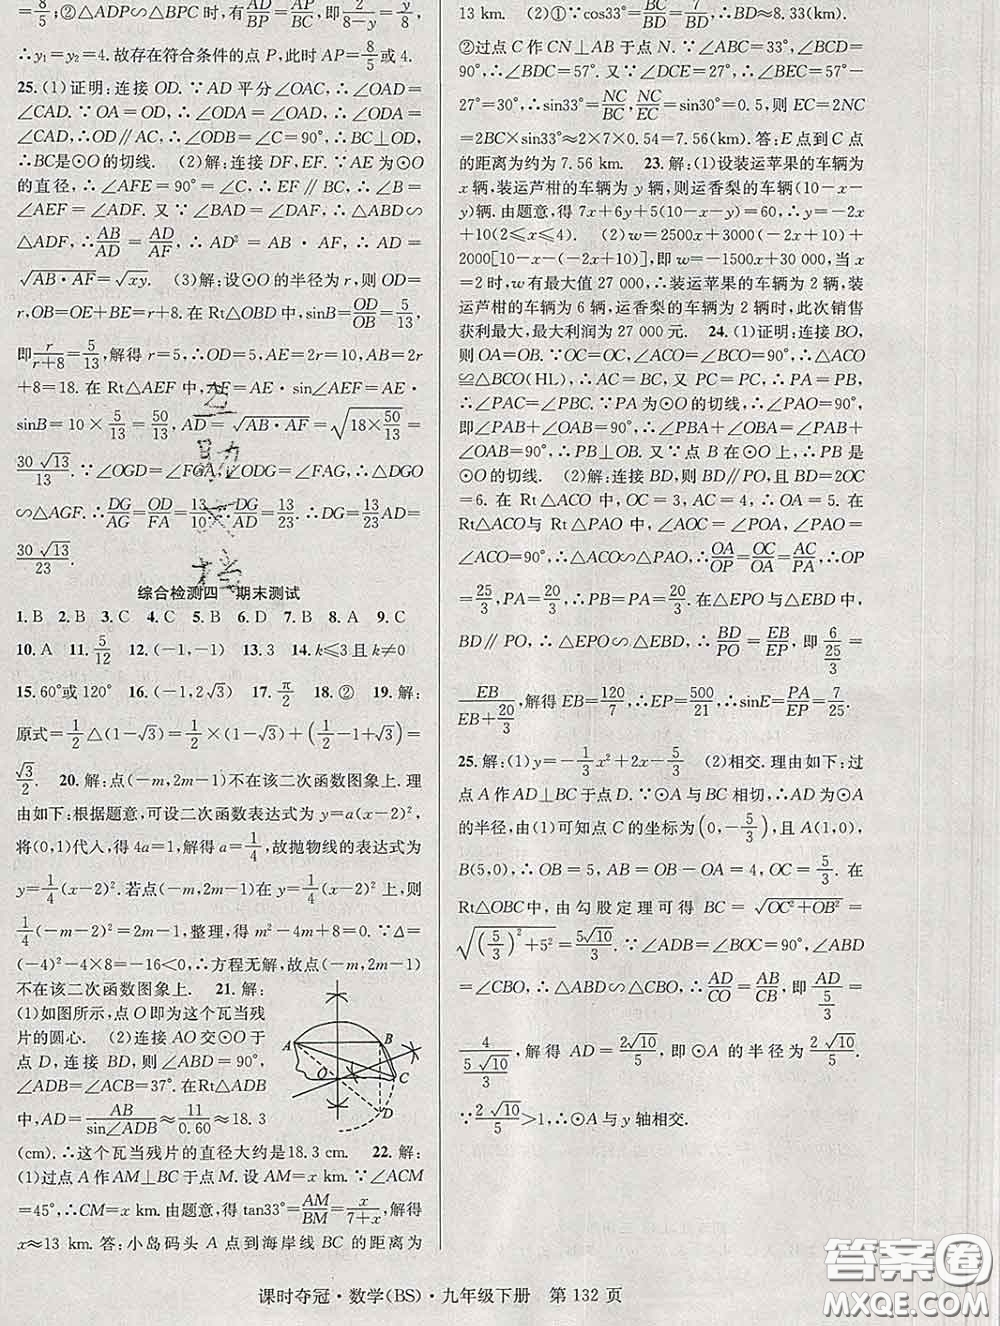 =8/5;②△ADP∽△BPC时,有AD/BP=AP/BC,即2/(8-y)=y/8,
∴y₁=y₂=4. 故存在符合条件的点 P,此时 AP=8/5或 4.
25. (1)证明:连接 OD. ∵AD 平分∠OAC,∴∠OAD=
∠CAD. ∵OA=OD,∴∠OAD=∠ODA,∴∠ODA
=∠CAD,∴OD∥AC,∴∠ODB=∠C=90°,∴BC⊥OD,
∴BC是⊙O的切线. (2)解:连接 DF,EF. ∵AE为⊙O
的直径,∴∠AFE=90°=∠C,∴EF∥BC,∴∠B=
∠AEF=∠ADF. 又∵∠BAD=∠DAF,∴△ABD∽
△ADF,∴AB/AD=AD/AF,∴AD²=AB·AF,∴AD=
√(AB·AF)=√(xy). (3)解:设⊙O的半径为r,则 OD=
r,OB=OE+BE=r+8. 在 Rt△OBD 中,sinB=OD/OB=5/13,
即r/(r+8)=5/13,解得 r=5,∴OD=5,AE=2r=10,AB=2r
+8=18. 在 Rt△AEF 中,AF=AE·sin∠AEF=AE·
sinB=10×5/13=50/13,AD=√(AB·AF)=√(18×50/13)=
30√13/13. ∵∠OGD=∠FGA,∠ODG=∠FAG,∴△DGO
∽△AGF. ∴DG/AG=OD/FA=13/10,∴DG/AD=13/23. ∴DG=13/23AD=
30√13/23.
综合检测四 期末测试
1. B 2. B 3. C 4. C 5. B 6. D 7. B 8. A 9. C
10. A 11. 5/12 12. (-1,-1) 13. 3 14. k≤3且k≠0
15. 60°或120° 16. (-1,2√3) 17. π/2 18. ② 19. 解:
原式=1/2△(1-√3)=1/2×(1-√3)+(1/2-1+√3)=
√3/2. 20. 解:点(-m,2m-1)不在该二次函数图象上. 理
由如下:根据题意,可设二次函数表达式为y=a(x-2)²,
将(0,1)代入,得 4a=1,解得a=1/4,故抛物线的表达式为
y=1/4(x-2)². 若点(-m,2m-1)在y=1/4(x-2)²上,则
1/4(-m-2)²=2m-1,整理,得 m²-4m+8=0. ∵Δ=
(-4)²-4×8=-16<0,∴方程无解,故点(-m,2m-1)
不在该二次函数图象上. 21. 解:
(1)如图所示,点O即为这个瓦当残
片的圆心. (2)连接 AO 交⊙O于
点 D,连接 BD,则∠ABD=90°,
∠ADB=∠ACB=37°. 在Rt△ADB
中,AD=AB/sin∠ADB≈11/0.60≈18.3
(cm). ∴这个瓦当残片的直径大约是18.3 cm. 22. 解:
(1)过点 A 作 AM⊥BC于点M. 设 AM=x km. ∵∠ACM
=45°,∴CM=x km. 由题意,得 tan33°=AM/BM=x/(7+x),解得
x≈13 km. 答:小岛码头 A 点到海岸线 BC 的距离为
A B O C D
13 km. (2)①∵cos33°=BC/BD=7/BD,∴BD≈8.33(km).
②过点 C 作 CN⊥AB 于点 N. ∵∠ABC=33°,∠BCD=
90°,∴∠BDC=57°. 又∵∠DCE=27°,∴∠BEC=57°-
27°=30°,∴sin33°=NC/BC,NC/EC=sin30°=0.5,则 EC=2NC
=2BC×sin33°≈2×7×0.54=7.56(km). 答:E 点到 C 点
的距离为约为 7.56 km. 23. 解:(1)设装运苹果的车辆为
x 辆,装运芦柑的车辆为 y 辆,则运香梨的车辆(10-x-
y)辆. 由题意,得 7x+6y+5(10-x-y)=60,∴y=-2x
+10(2≤x≤4). (2)w=2500x+3000(-2x+10)+
2000[10-x-(-2x+10)],即 w=-1500x+30 000,当
x=2 时,w 有最大值 27 000,∴装运苹果的车辆为 2 辆,装
运芦柑的车辆为 6 辆,运香梨的车辆为 2 辆时,此次销售
获利最大,最大利润为 27 000 元. 24. (1)证明:连接 BO,
则 OA=OB. ∵OC=OC,∠ACO=∠BCO=90°,∴△ACO
≌△BCO(HL),∴AC=BC. 又 PC=PC,∴PA=PB,
∴∠PAC=∠PBC. ∵PA为⊙O的切线,∴∠PAO=90°,
即∠PAB+∠OAB=90°,∴∠PBA+∠OBA=∠PAB+
∠OAB=90°,∴PB⊥OB. 又∵点 B 在⊙O上,∴PB是
⊙O的切线. (2)解:连接 BD,则 BD∥PO,且 BD=2OC
=6. 在 Rt△ACO 中,OC=3,AC=4,∴OA=5. 在
Rt△ACO与 Rt△PAO 中,∠AOC=∠POA,∠PAO=
∠ACO=90°,∴△ACO∽△PAO,∴OA/OP=OC/OA=AC/PA,∴OP
=25/3,PA=20/3,∴PB=PA=20/3. 在△EPO 与△EBD 中,
BD∥PO,∴△EPO∽△EBD,∴BD/PO=EB/EP,即 6/(25/3)=
EB/(EB+20/3),解得 EB=120/7,∴EP=500/21,∴sinE=PA/EP=7/25.
25. 解:(1)y=-1/3x²+2x-5/3 (2)相交. 理由如下:过
点 A 作 AD⊥BC 于点 D. ∵⊙A与 BC 相切,∴AD为⊙A
的半径,由(1)可知点 C 的坐标为(0,-5/3),且 A(1,0),
B(5,0),∴OB=5,AB=OB-OA=4,OC=5/3. 在
Rt△OBC中,由勾股定理可得 BC=√(OC²+OB²)=
√((5/3)²+5²)=5√10/3. ∵∠ADB=∠BOC=90°,∠ABD
=∠CBO,∴△ABD∽△CBO,∴AD/CO=AB/CB,即AD/(5/3)=
4/(5√10/3),解得 AD=2√10/5,即⊙A 的半径为2√10/5.
∵2√10/5>1,∴⊙A与 y 轴相交.
课时夺冠·数学(BS)·九年级下册 第 132 页
答案圈
MXQE.COM